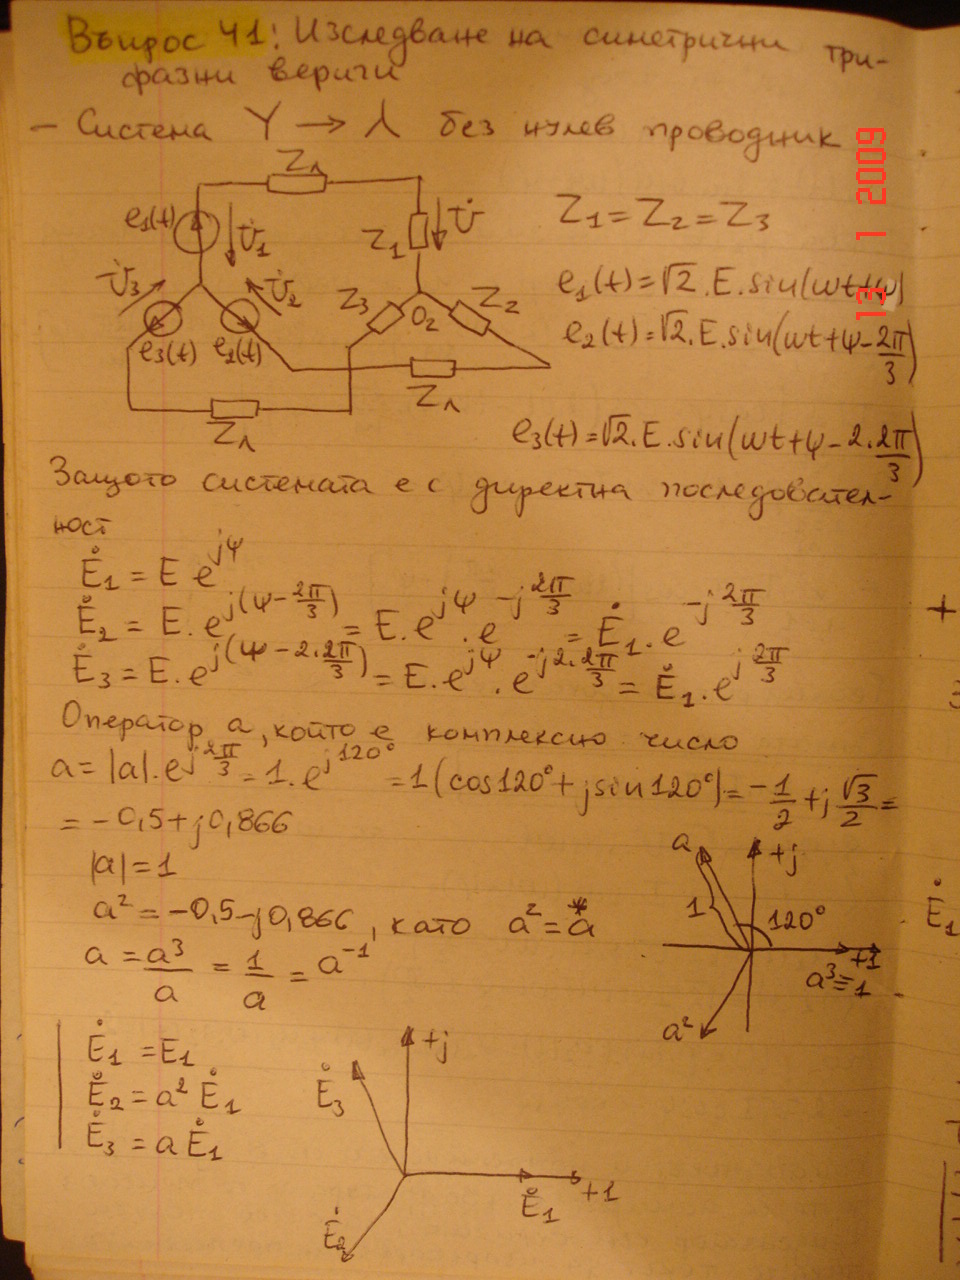 Въпрос 41: Изследване на симетрични три-
фазни вериги
- Система Y → ⅄ без нулев проводник
Zл
e1(t) U̇1 Z1 U̇
Z1 = Z2 = Z3
U̇3 U̇2 Z3 O2 Z2
e1(t) = √2.E.sin(ωt+ψ)
e3(t) e2(t)
e2(t) = √2.E.sin(ωt+ψ-2π/3)
Zл
Zл
e3(t) = √2.E.sin(ωt+ψ-2.2π/3)
13 1 2009
Защото системата е с директна последовател-
ност
Ė1 = E e^jψ
Ė2 = E.e^j(ψ-2π/3) = E.e^jψ . e^-j2π/3 = Ė1.e^-j2π/3
Ė3 = E.e^j(ψ-2.2π/3) = E.e^jψ . e^-j2.2π/3 = Ė1.e^j2π/3
Оператор а, който е комплексно число
a = |a|.e^j2π/3 = 1.e^j120° = 1(cos120°+jsin120°) = -1/2 + j√3/2 =
= -0,5+j0,866
|a| = 1
a² = -0,5-j0,866, като a² = a*
a = a³/a = 1/a = a^-1
a +j
1 120°
+1
a³≡1
a²
Ė1 = E1
Ė2 = a² Ė1
Ė3 = a Ė1
+j
Ė3
+1
Ė1
Ė2
Ė1